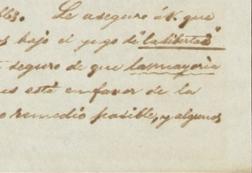 les. Le aseguro á V. que
os bajo el yugo de "la libertad"
seguro de que la mayoria
es está en favor de la
o remedio posible, y algunos